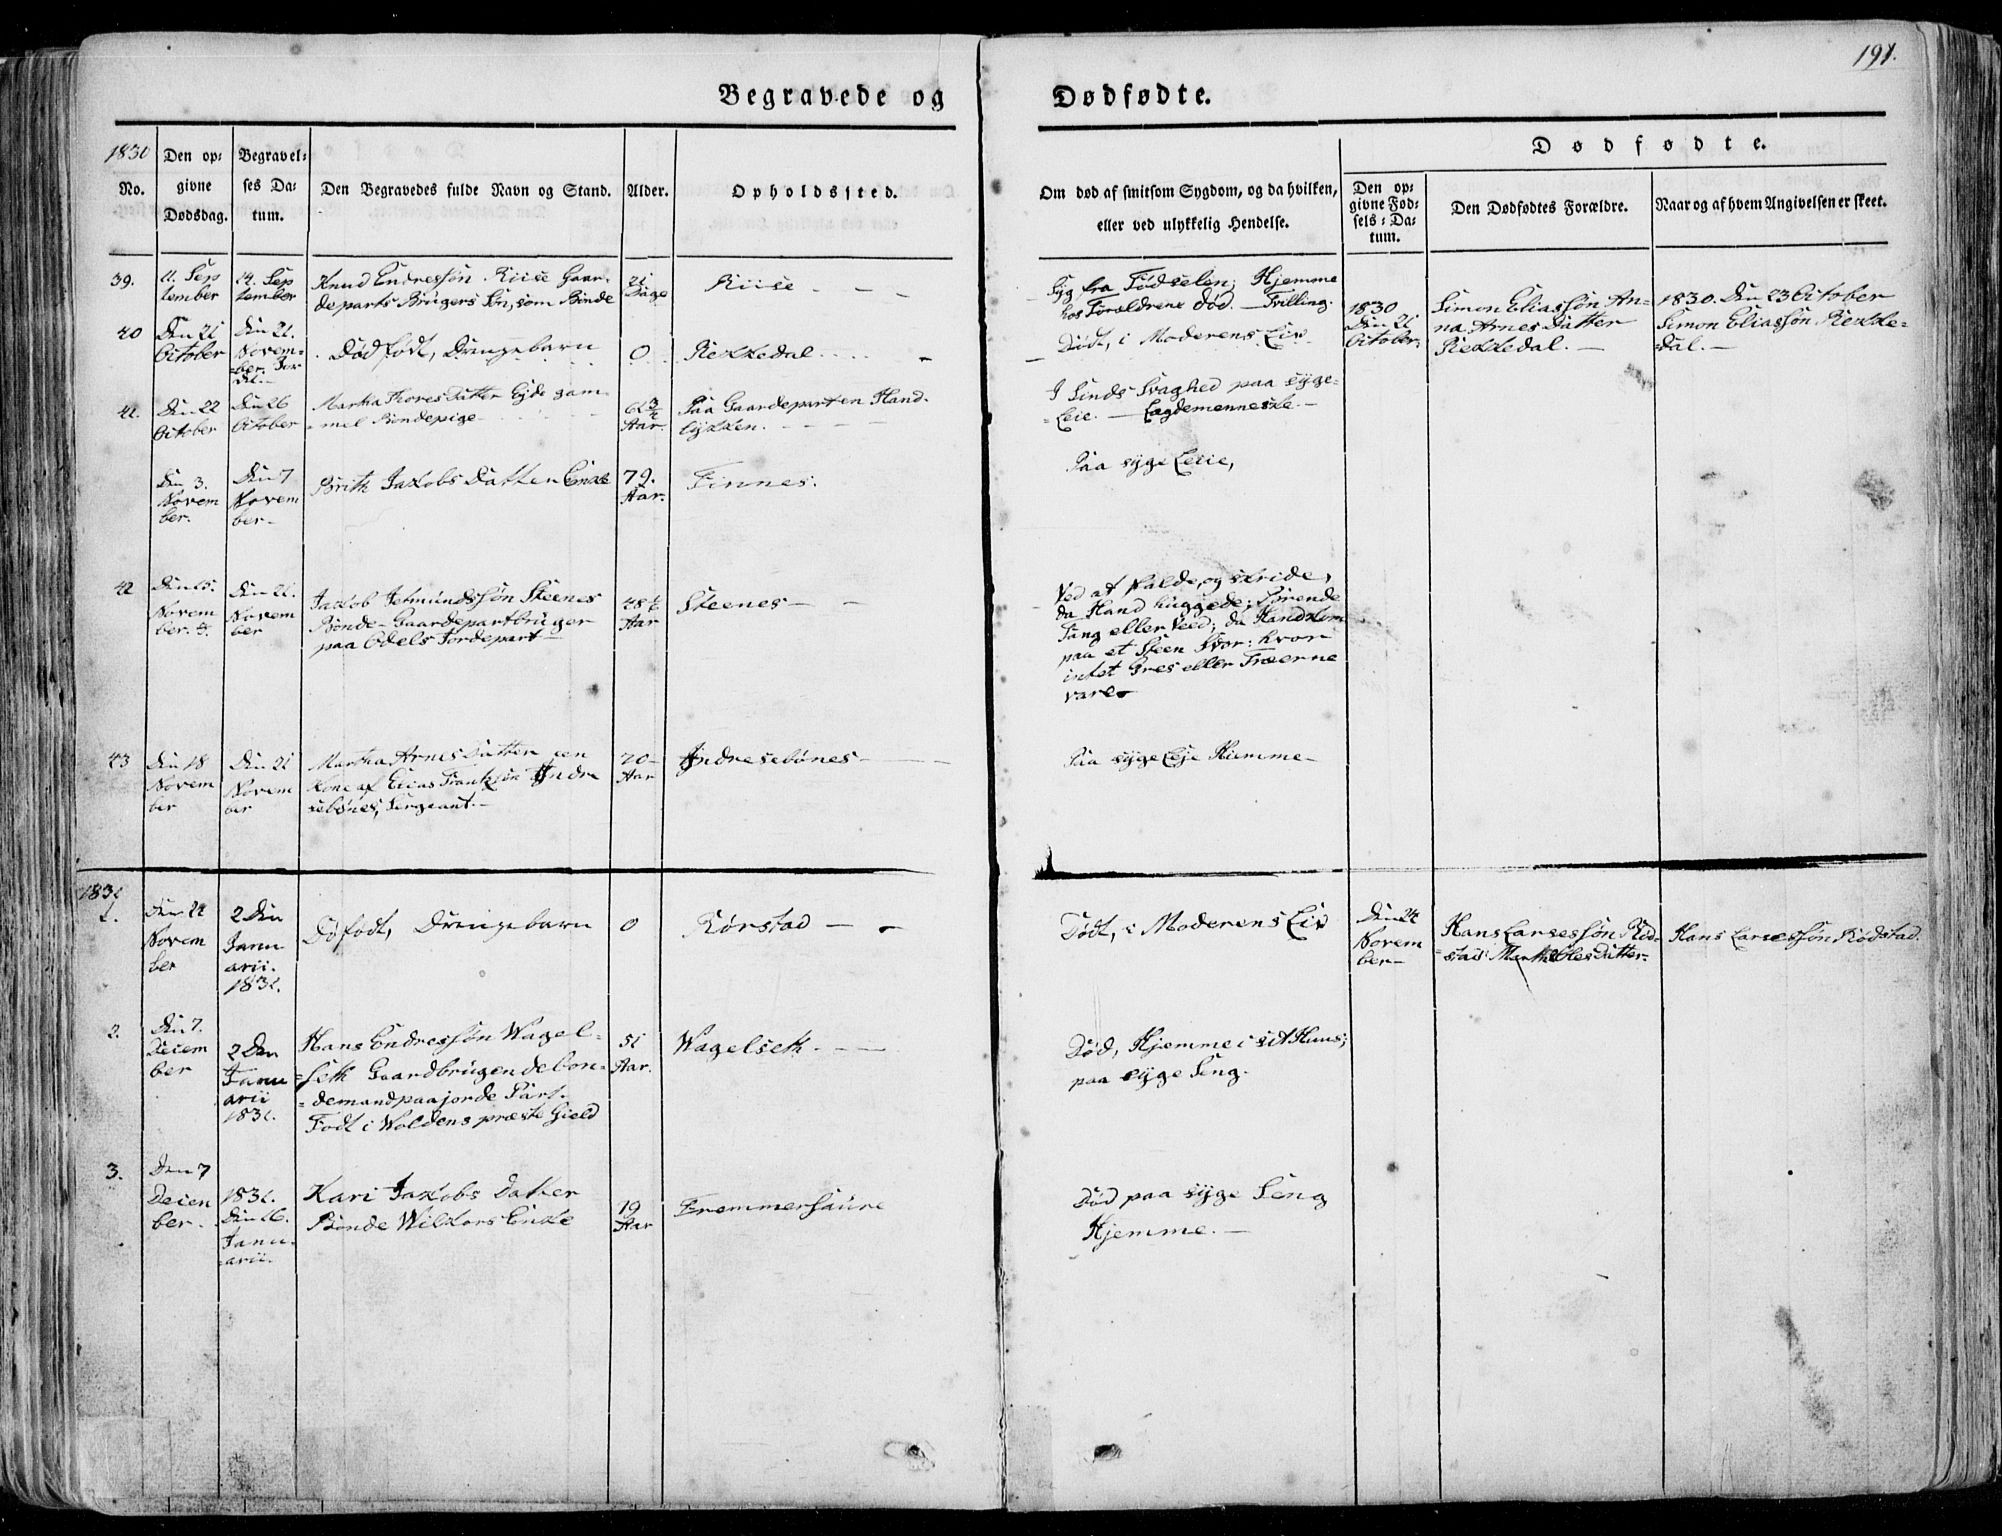 191.
Begravede og Dødfødte.
1830
No.
Den op-
givne
Dødsdag.
Begravel-
ses Da-
tum.
Den Begravedes fulde Navn og Stand.
Alder.
Opholdssted.
Om død af smitsom Sygdom, og da hvilken,
eller ved ulykkelig Hendelse.
Dødfødte.
Den op-
givne Fød-
sels-Da-
tum.
Den Dødfødtes Forældre.
Naar og af hvem Angivelsen er skeet.
39.
11. Sep
tember
14. Sep
tember
Knud Endressøn Riise Gaar-
departs Brugers Søn, som Bonde
21
Dage
Riise
Syg fra Fødselen; Hjemme
hos Foreldrene død. Tvilling.
40
Den 21
October
Den 21.
Novem-
ber.
Død født, Drengebarn
0
Rekkedal
Dødt, i Moderens Liv
1830
Den 21
October.
Simon Eliassøn An-
na Arnes Datter
Rekkedal.
1830. Den 23 October
Simon Eliassøn Rekke-
dal.
41.
Den 22
October
Den 26
October
Martha Thores Datter Eyde gam-
mel Bondepige
61 3/4
Aar.
Paa Gaardeparten Hand-
lykken.
I Sinds Svaghed paa syge-
Leie. Lægdemenneske
Den 3.
Novem
ber.
Den 7
Novem
ber
Brith Jakobs Datter Enke
79.
Aar.
Finnes.
Paa syge Leiie,
42
Den 15.
Novem
ber.
Den 21.
Novem
ber
Jakob Jetmundssøn Steenes
Bonde-Gaardepartbruger
paa Odels Jordepart
48 1/2
Aar
Steenes
Ved at Falde, og skride,
da Hand huggede;
Tang eller Veed; da Hand kom
paa et Steen
intet Gres eller Træerne
vare
43
Den 18
Novem
ber
Den 21
Novem
ber
Martha Arnes Datter een
Kone af Elias Frantzsøn Indre
sebønes, Sergeant.
70
Aar
Indresebønes
Paa syge Leje Hiemme
1831
1.
Den 24
Novem
ber
2 Den
Janu
arii.
1831.
Døfødt, Drengebarn
0
Rørstad
Dødt, i Moderens Liv
Den 24
Novem
ber
Hans Larsessøn Rød-
stad Marth Oles Datter
Hans Larsessøn Rødstad.
2.
Den 7.
Decem
ber
2 Den
Janu
arii
1831.
Hans Endressøn Wagel-
seth Gaardbrugende bon-
demand paa jorde Part.
Født i Woldens præste Gield
51
Aar.
Wagelseth
Død, Hjemme i sit Huus;
paa syge Seng.
3.
Den 7
Decem
ber.
1831.
Den 16.
Janu-
arii.
Kari Jakobs Datter
Bonde Wilkors Enke
79
Aar
Fremmersaure
Død paa syge Seng
Hjemme.